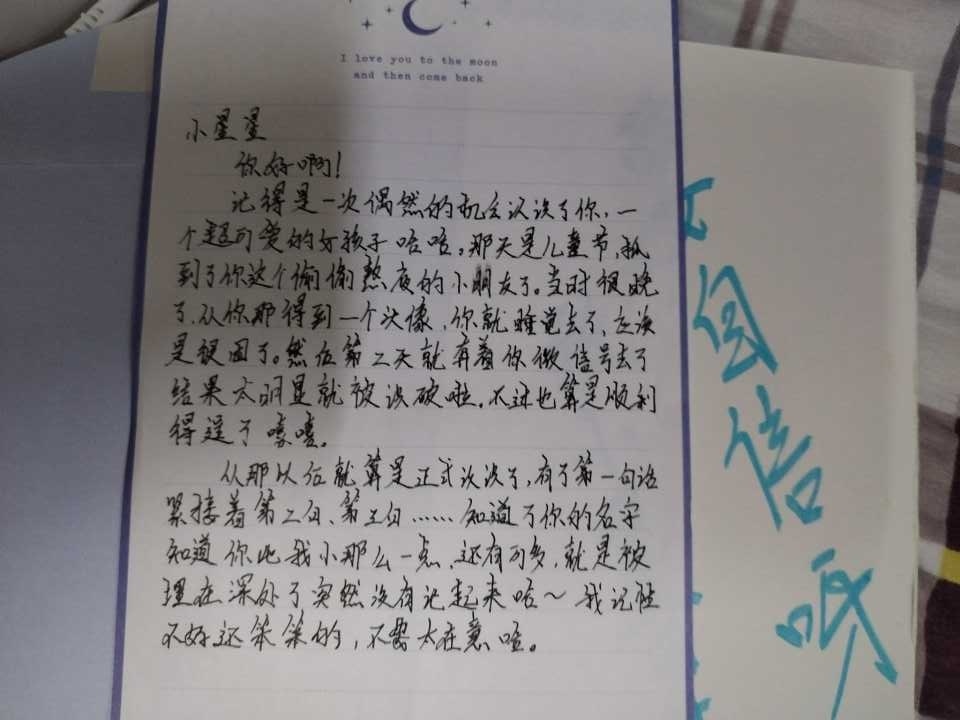 I love you to the moon
and then come back
小星星
你好啊!
记得是一次偶然的机会认识了你,一
个超可爱的好孩子哈哈。那天是儿童节,抓
到了你这个偷偷熬夜的小朋友了。当时很晚
了,从你那得到一个头像,你就睡觉去了,应该
是很困了。然后第二天就奔着你微信号去了
结果太明显就被识破啦。不过也算是顺利
得逞了嘻嘻。
从那以后就算是正式认识了,有了第一句话
紧接着第二句、第三句……知道了你的名字
知道你比我小那么一点,还有可多,就是被
埋在深处了突然没有记起来哈~我记性
不好还笨笨的,不要太在意哈。
自
信
呀